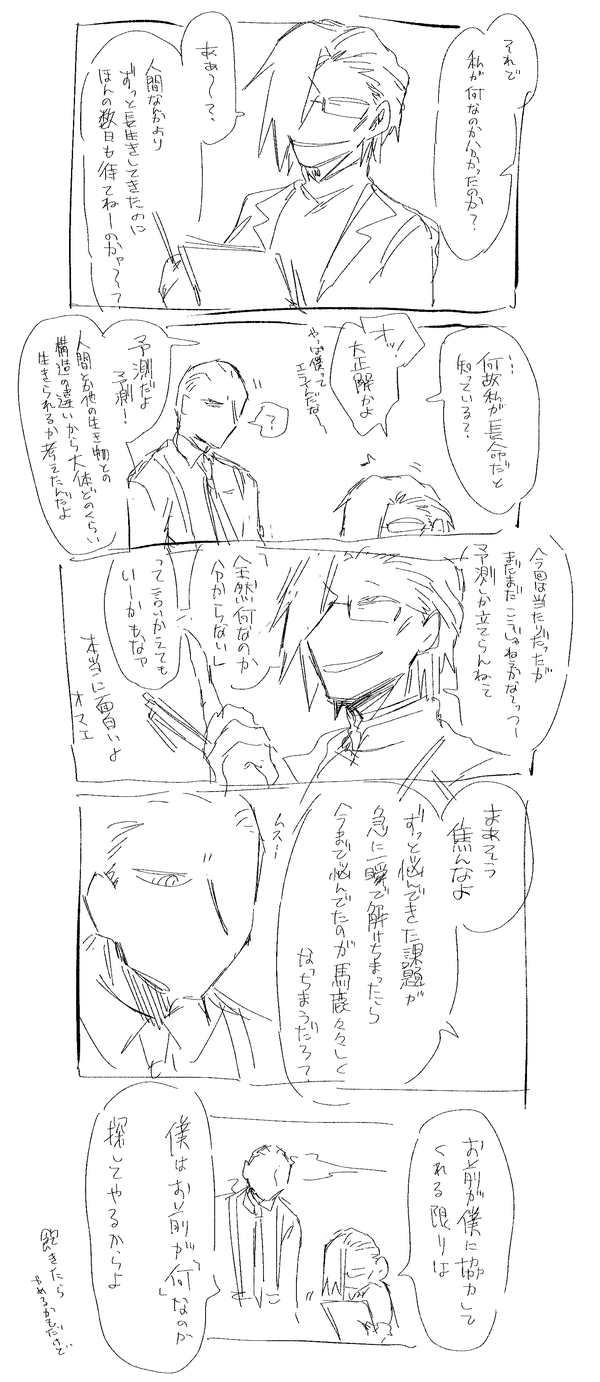 それで
私が何なのか分かったのか?
ああ〜?
人間なんかより
ずっと長生きしてきたのに
ほんの数日も待てねーのかァ〜?
…何故私が長命だと
知っている?
オッ!
大正解かよ
やっぱ僕って
天才だな〜
?
予測だよ
予測!
人間と他の生き物との
構造の違いから大体どのくらい
生きられるか考えてたんだよ
今回は当たりだったが
まだまだ
予測しか立てらんねぇ
「全然何なのか
分からない」
って言いかえても
いーかもなァ
本当に面白いよ
オマエ
まあそう
焦んなよ
ずっと悩んできた課題が
急に一瞬で解けちまったら
今まで悩んでたのが馬鹿々々しく
なっちまうだろ?
ムスー
お前が僕に協力して
くれる限りは
僕はお前が「何」なのか
探してやるからよ
飽きたら
やめるかもだけど